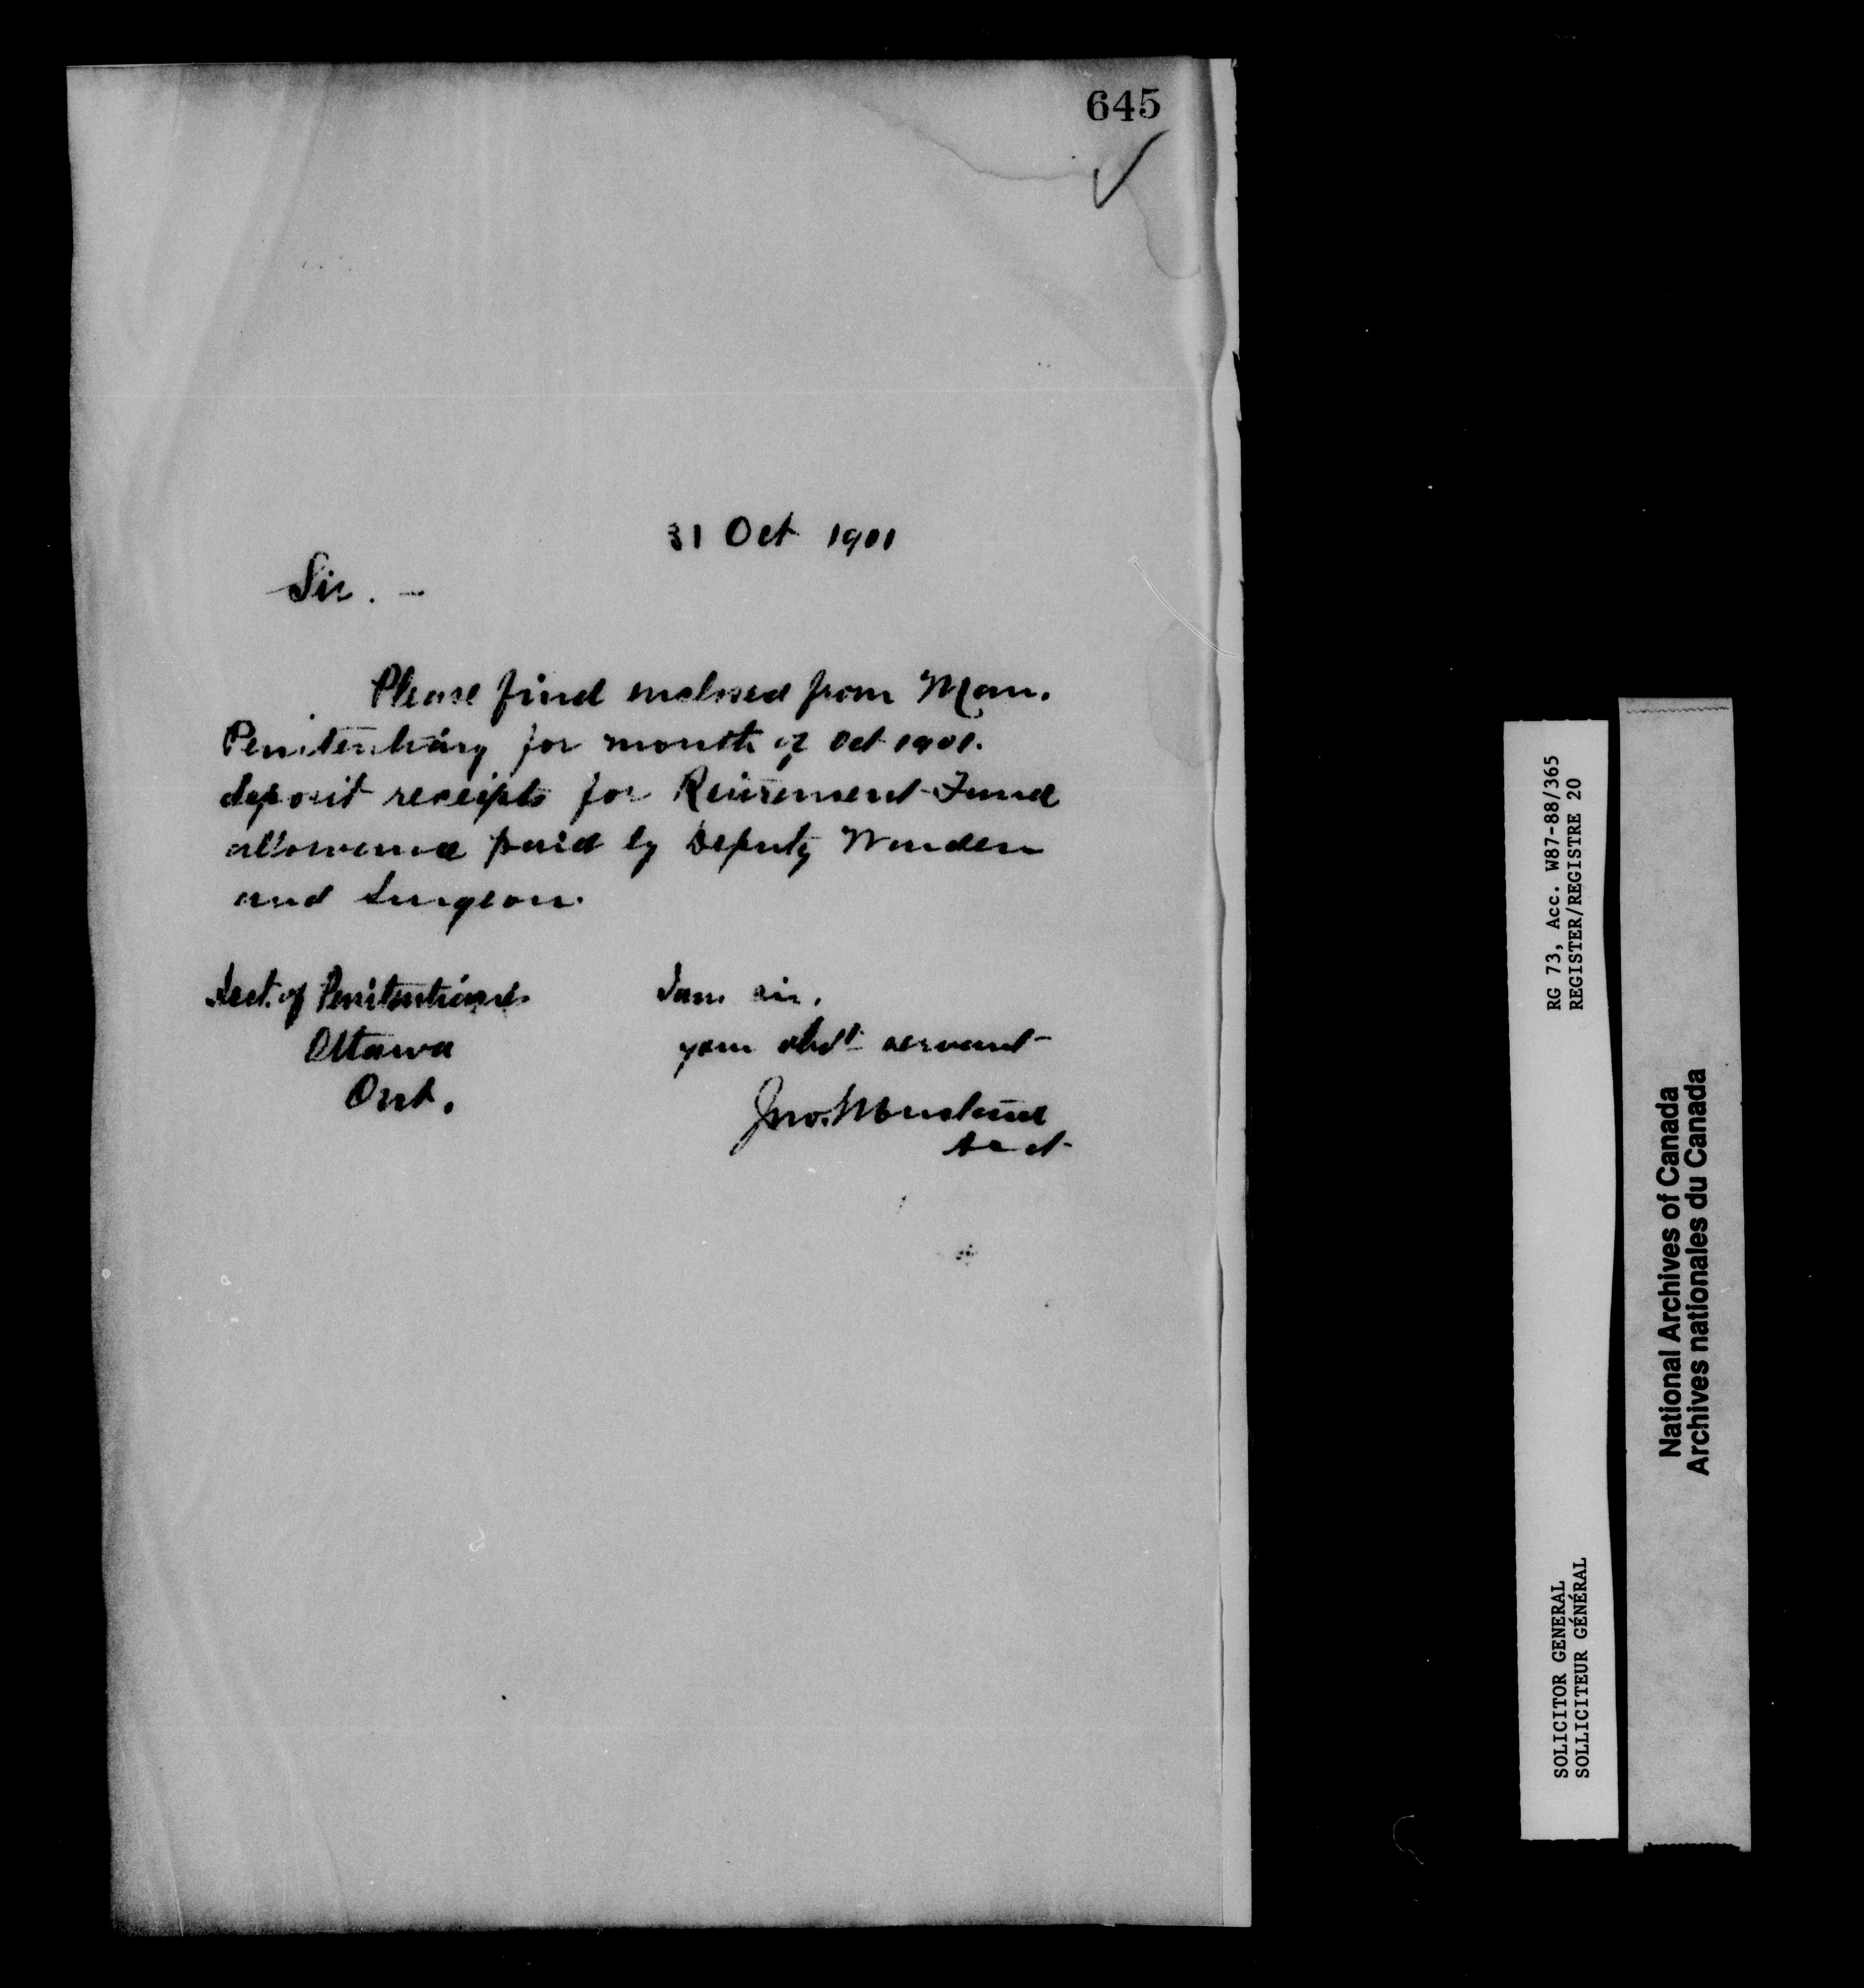 645
31 Oct 1901
Sir. -
Please find enclosed from Man.
Penitentiary for month of Oct 1901.
deposit receipts for Retirement Fund
allowance paid by Deputy Warden
and Surgeon.
Acct. of Penitentiaries
Ottawa
Ont.
I am sir.
your obdt servant
Jno.
Acct
RG 73, Acc. W87-88/365
REGISTER/REGISTRE 20
SOLICITOR GENERAL
SOLLICITEUR GÉNÉRAL
National Archives of Canada
Archives nationales du Canada